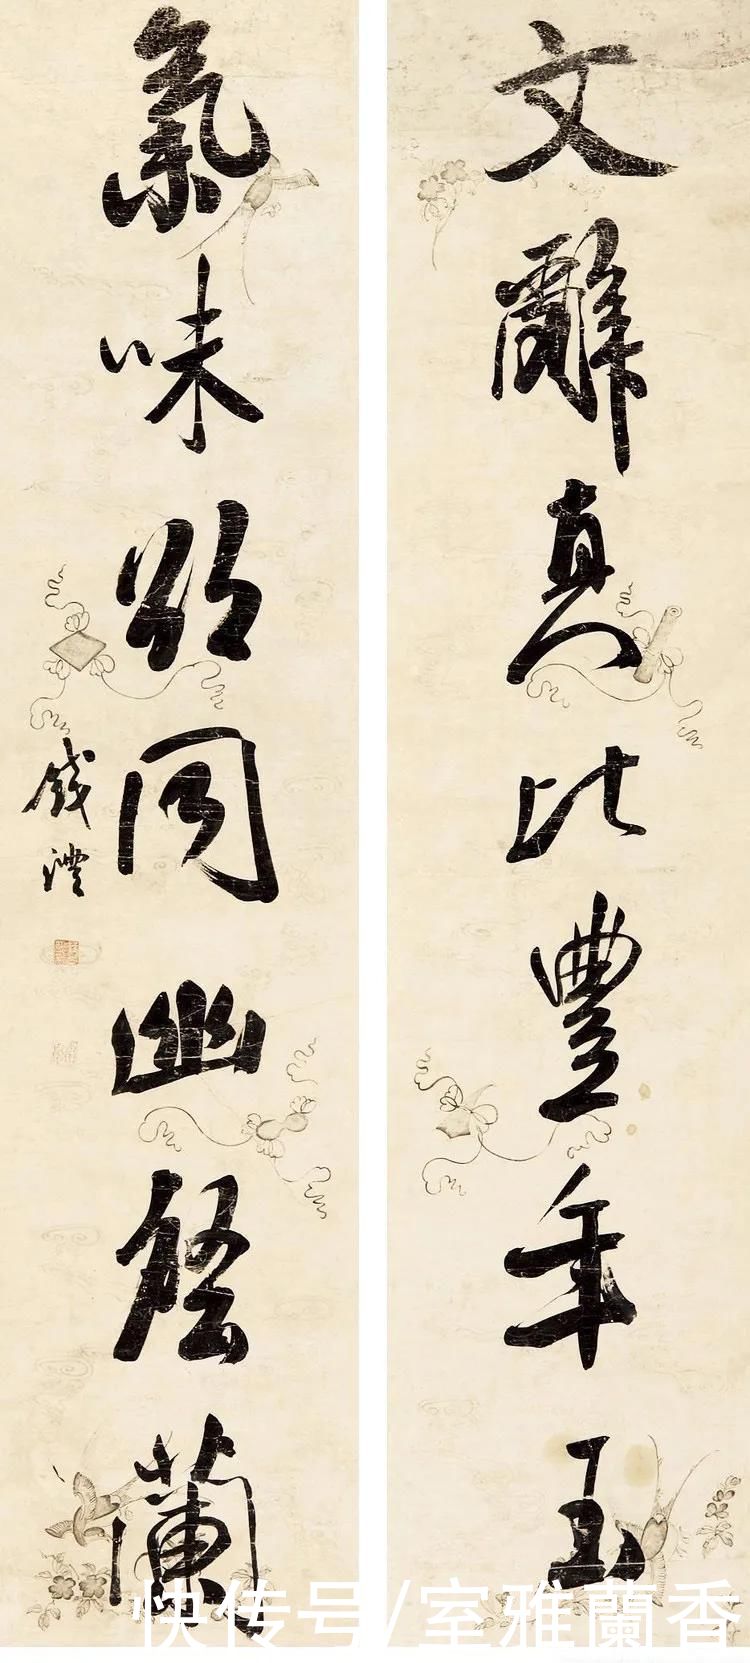 文辭真比豐年玉
氣味同幽蘭
錢灃
快传号/室雅蘭香